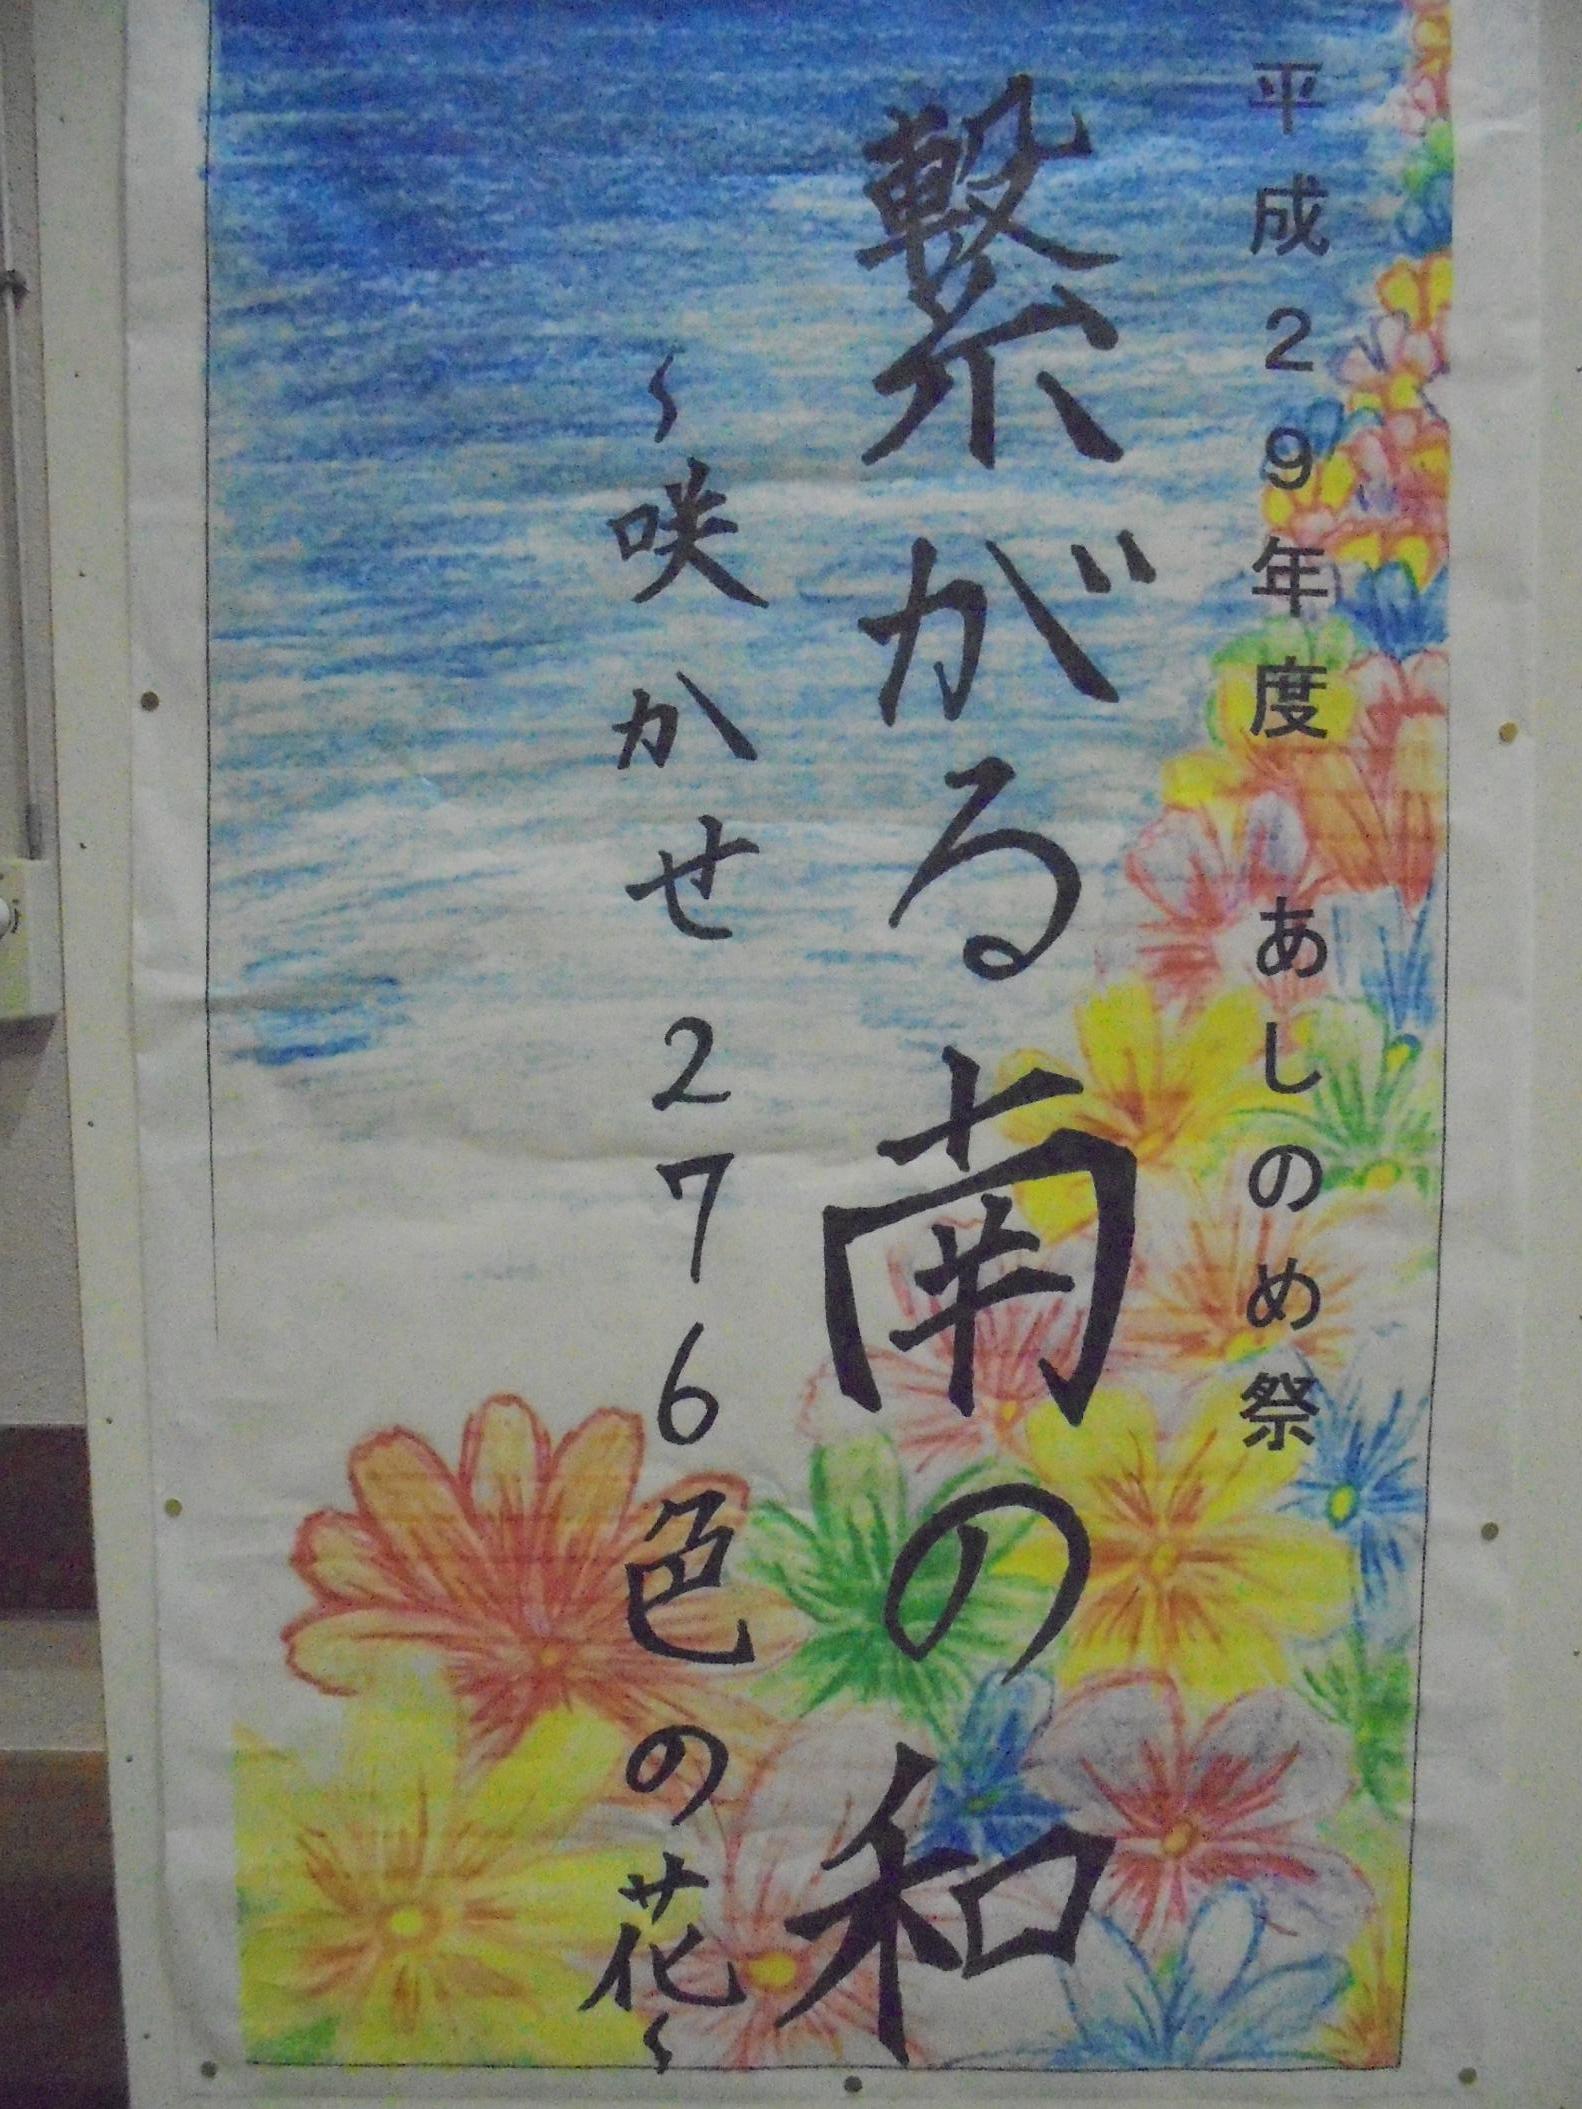 平成２９年度　あしのめ祭
繋がる南の和
〜咲かせ276色の花〜